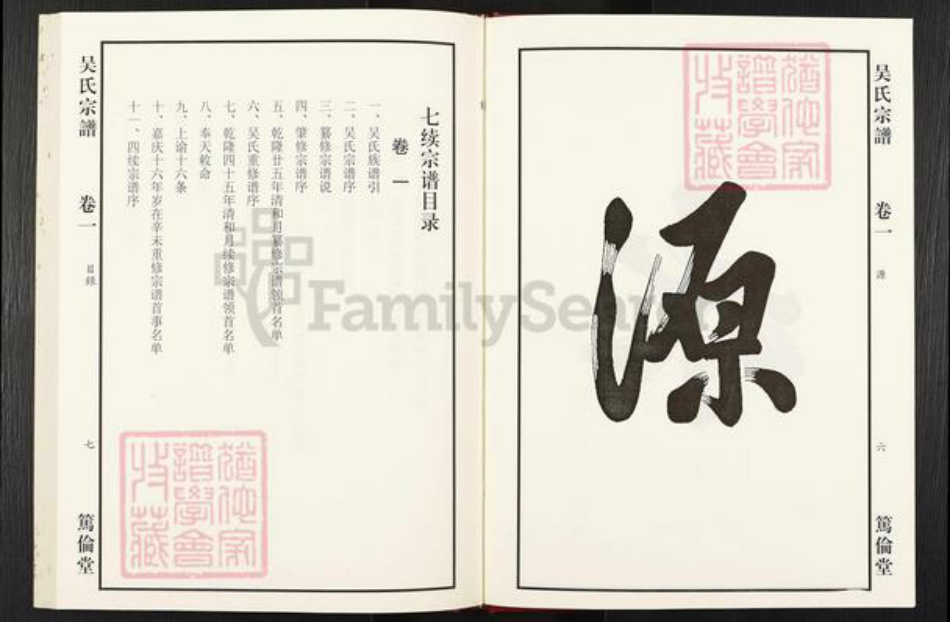 吴氏宗譜
卷一
源
六
篤倫堂
源
猶他家
譜學會
收藏
七续宗谱目录
卷一
一、吴氏族谱引
二、吴氏宗谱序
三、纂修宗谱说
四、肇修宗谱序
五、乾隆廿五年清和月纂修宗谱领首名单
六、吴氏重修谱序
七、乾隆四十五年清和月续修宗谱领首名单
八、奉天敕命
九、上谕十六条
十、嘉庆十六年岁在辛未重修宗谱首事名单
十一、四续宗谱序
吴氏宗譜
卷一
目錄
七
篤倫堂
猶他家
譜學會
收藏
FamilySearch